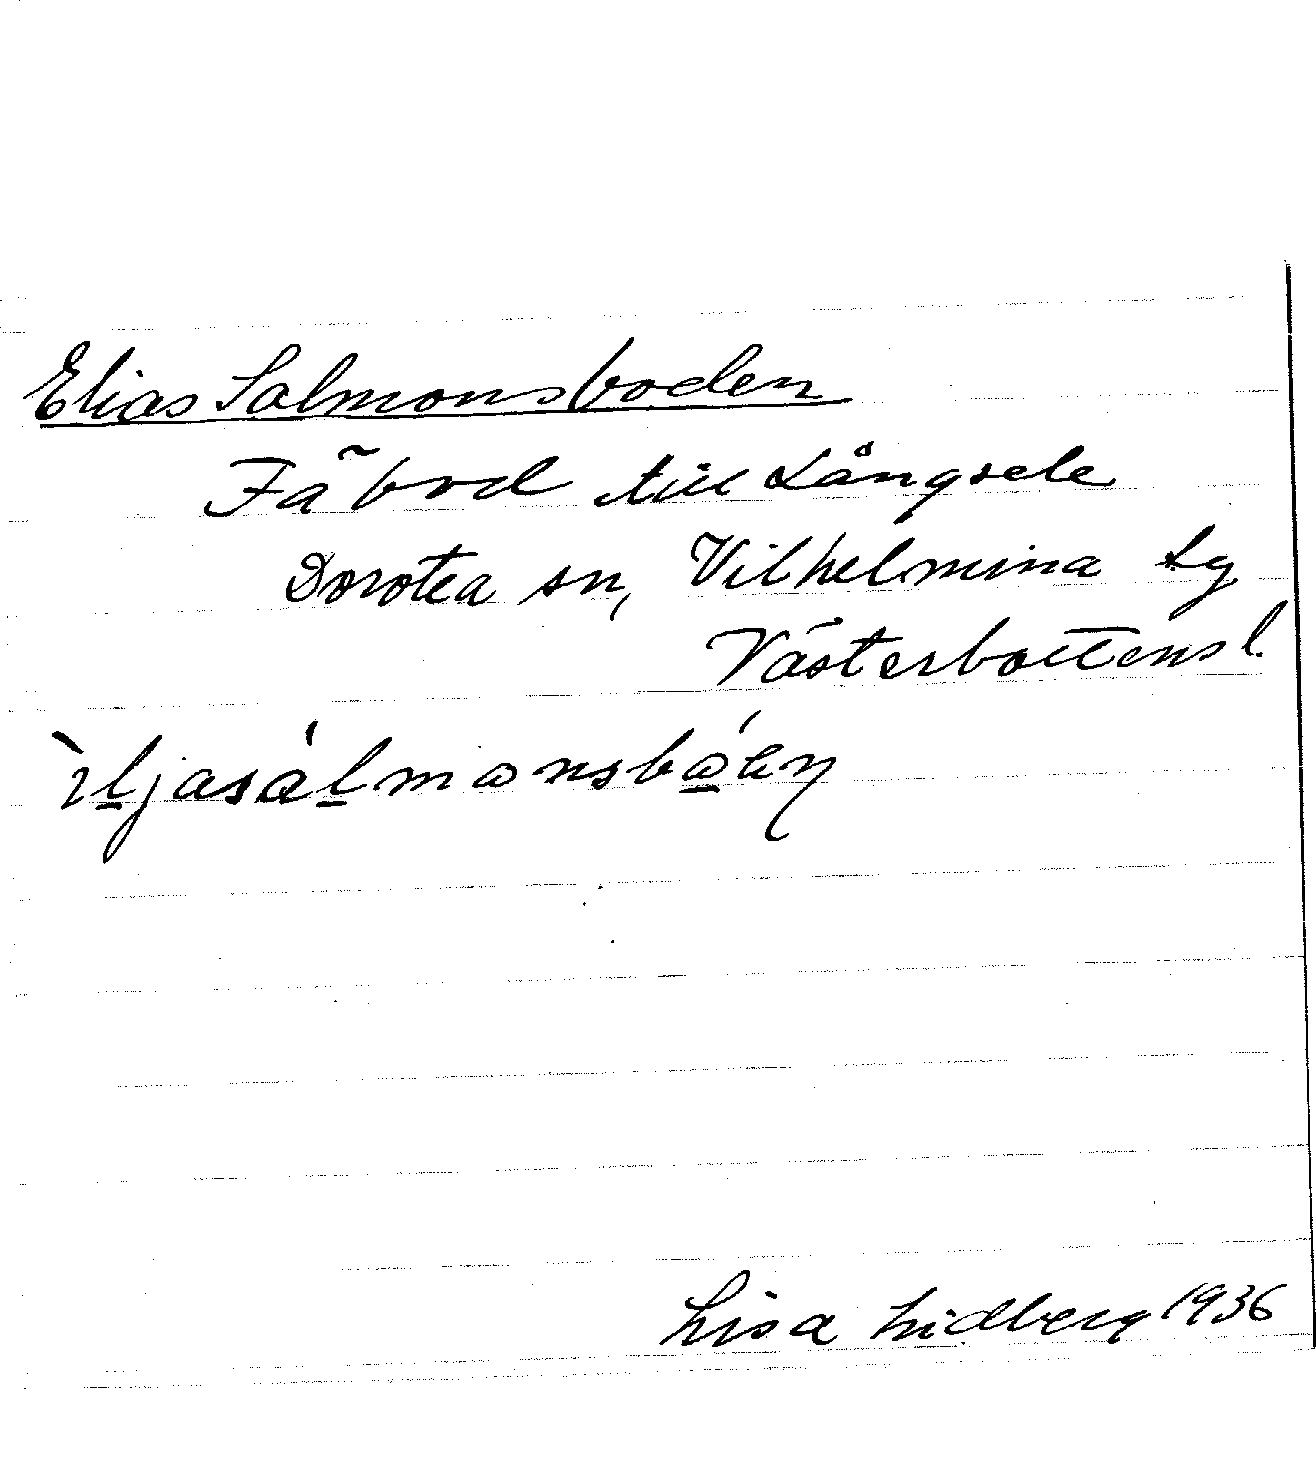 Elias Salmonsboden
Fäbod till Långsele
Dorotea sn, Vilhelmina tg
Västerbottens l.
Lisa Lidberg 1936